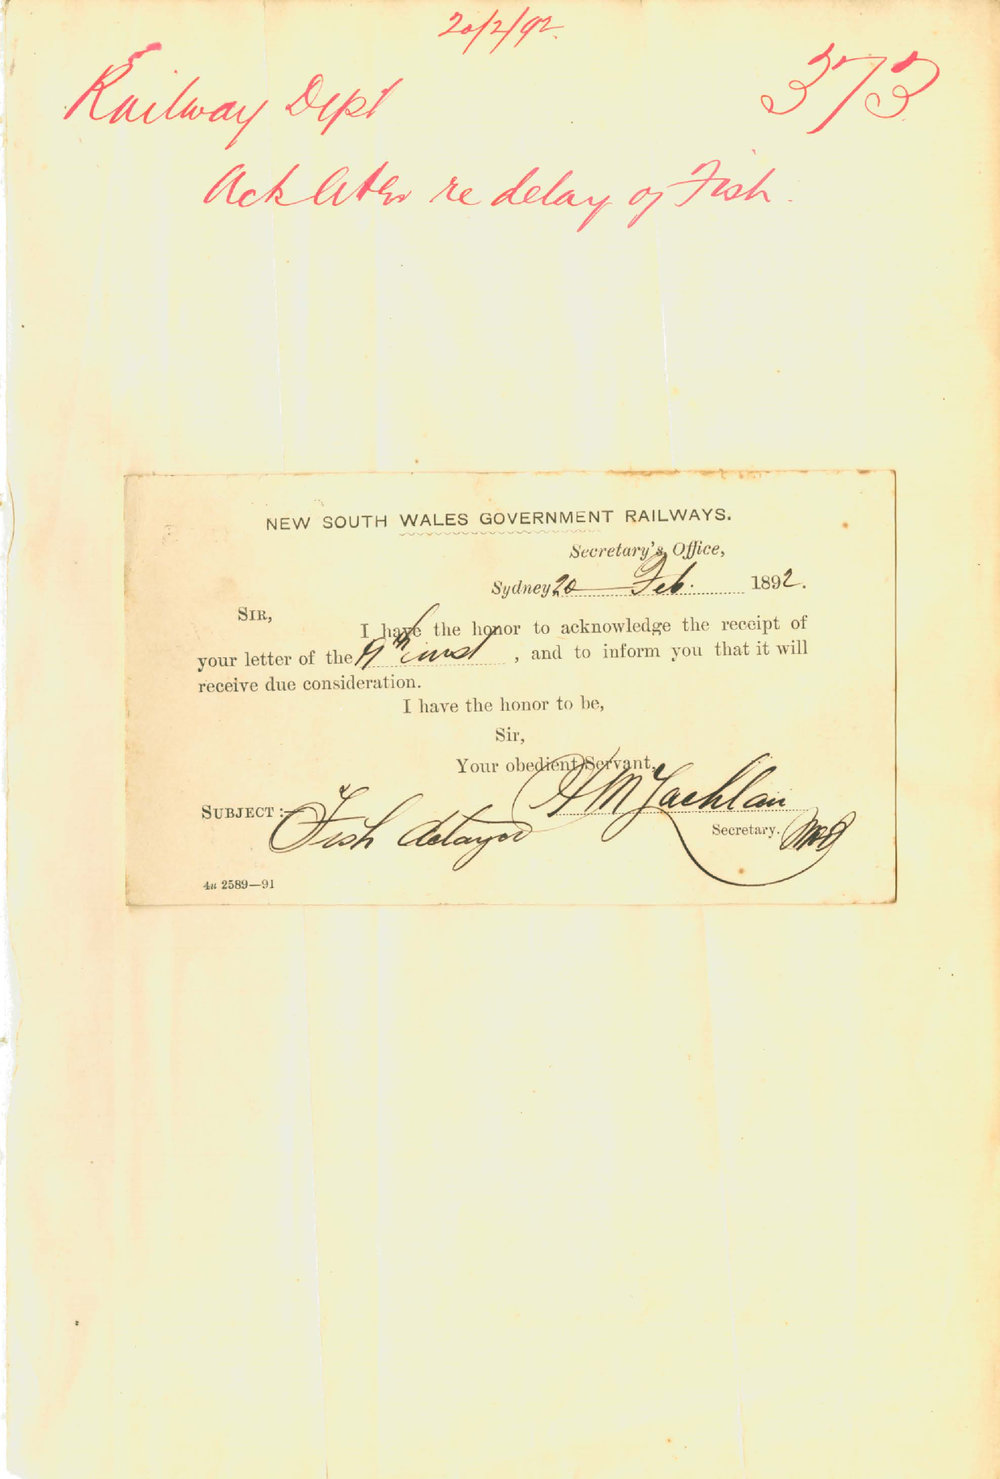 20/2/92.
Railway Dept 373
Ack letter re delay of Fish.
NEW SOUTH WALES GOVERNMENT RAILWAYS.
Secretary's Office,
Sydney 20 Feb. 1892.
SIR,
I have the honor to acknowledge the receipt of
your letter of the inst, and to inform you that it will
receive due consideration.
I have the honor to be,
Sir,
Your obedient Servant,
H McLachlan
SUBJECT:— Fish delayed
Secretary.
4u 2589—91